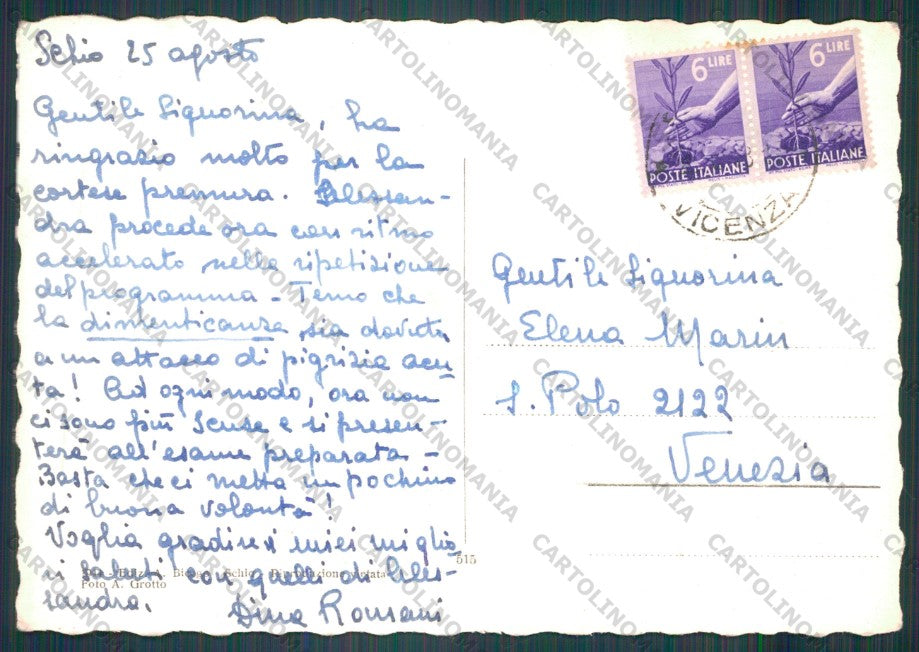 Schio 25 agosto
Gentile Signorina, La
ringrazio molto per la
cortese premura. Alessan-
dra procede ora con ritmo
accelerato nella ripetizione
del programma - Temo che
la dimenticanza sia dovuta
a un attacco di pigrizia acu-
ta! Ad ogni modo, ora non
ci sono più scuse e si presen-
terà all'esame preparata -
Basta che ci metta un pochino
di buona volontà!
Voglia gradire i miei miglio
ri saluti con quelli di Ales-
sandra.
Dina Romani
515
Schio - Riproduzione vietata
Foto A. Grotto
6 LIRE
POSTE ITALIANE
6 LIRE
POSTE ITALIANE
VICENZA
Gentile Signorina
Elena Marin
S. Polo 2122
Venezia
CARTOLINOMANIA